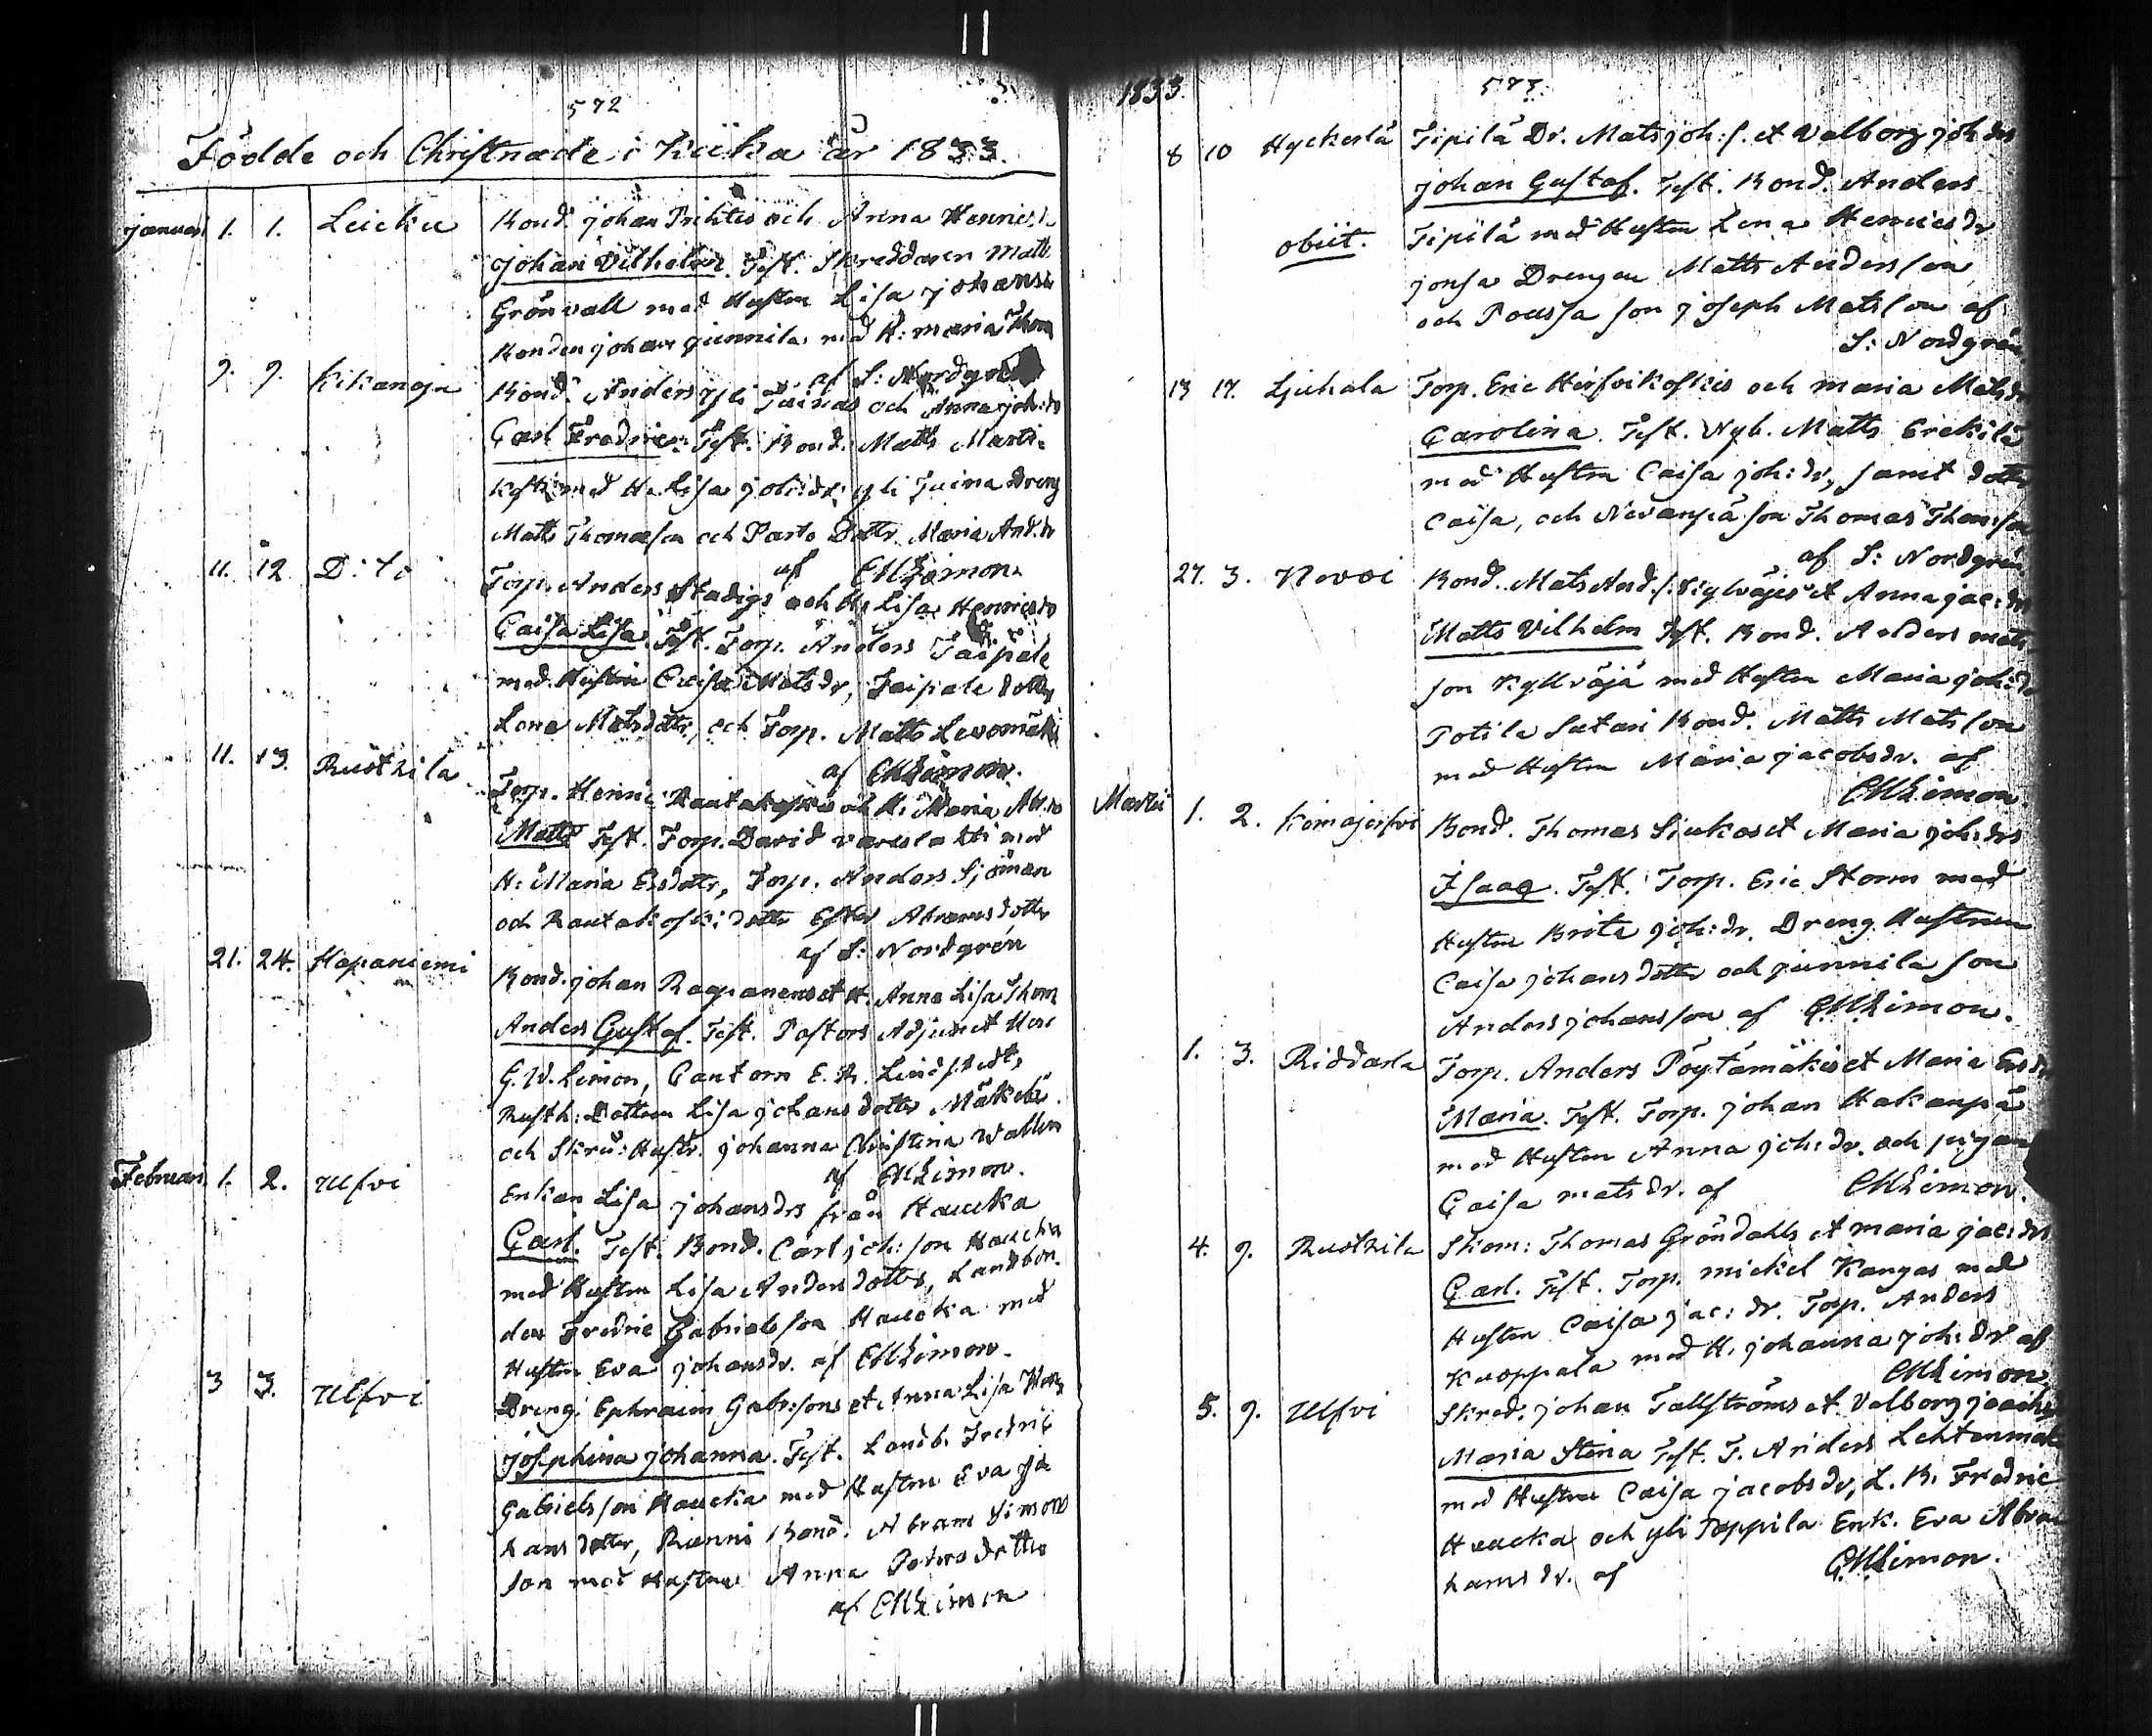 572
Födde och Christnade i Kiika år 1833.
Januari 1. 1. Leiku Bond. Johan Prihtis och Anna Henricsdr
Johan Vilhelm. Test. Skreddaren Matts
Grönvall med Hustru Lisa Johansdr
Bonden Johan Junnila med H: Maria Thom
af S: Nordgrén
9. 9. Kikanoja Bond. Anders Yli Juinas och Anna Joh:dr
Carl Fredric. Test. Bond. Matts Marti
koski med H. Lisa Joh:dr, Yli Juina Dreng
Matts Thomasson och Parto Dottr. Maria And.dr
af GWLimon.
11. 12 Dito Torp. Anders Stadigs och H. Lisa Henricsdr
Caisa Lisa. Test. Torp. Anders Taipale
med Hustru Caisa Matsdr, Taipale dotter
Lena Matsdotter, och Torp. Matts Levomäki
af GWLimon.
11. 13. Ruotzila Torp. Henric Rautakoskis och H. Maria Abr.dr
Matts Test. Torp. David Vareslahti med
H: Maria Ersdotter, Torp. Anders Sjöman
och Rautakoski dotter Ester Abramsdotter
af S: Nordgrén
21. 24. Hapaniemi Bond. Johan Raipanens et H. Anna Lisa Thom
Anders Gustaf. Test. Pastors Adjunct Herr
G. W. Limon, Cantorn E. A. Lindstedt,
Rusth: Dottren Lisa Johans dotter Mäkelä.
och Skrd: Hustr. Johanna Christina Wallen
af GWLimon.
Februari 1. 2. Ulfvi Enkan Lisa Johansdrs från Haucka
Carl. Test. Bond. Carl Joh:son Haucka
med Hustru Lisa Andersdotter, Landbon
den Fredric Gabrielsson Haucka med
Hustru Eva Johansdr. af GWLimon.
3 3. Ulfvi Dreng. Ephraim Gabr:sons et Anna Lisa
Josephina Johanna. Test. Landb. Fredric
Gabrielsson Haucka med Hustru Eva Jo
hansdotter, Bond. Abram Simons
son med Hustru Anna Petersdotter
af GWLimon
1833. 573.
8 10 Hyckerlä Tipilä Dr. Mats Joh:s. et Valborg Joh drs
Johan Gustaf. Test. Bond. Anders
obiit. Tipilä med Hustru Lena Henricsdr
Jonsa Drengen Matts Andersson
och Poussa son Joseph Matsson af
S: Nordgrén
13 17. Ljuhala Torp. Eric Hirfvikoskis och Maria Matsdr
Carolina. Test. Nyb. Matts Erckilä
med Hustru Caisa Joh:dr, samt dotter
Caisa, och Nevanpä son Thomas Thomson
af S: Nordgrén
27. 3. Novoi Bond. Mats And.s. Kyllväjes et Anna Jac:drs
Matts Vilhelm Test. Bond. Anders Mats
son Kyllväjä med Hustru Maria Joh:dr
Potila Sutari Bond. Matts Matsson
med Hustru Maria Jacobsdr. af
GWLimon
Martii 1. 2. Kimajerfvi Bond. Thomas Siukas et Maria Joh:drs
Isaac. Test. Torp. Eric Storm med
Hustru Brita Joh:dr. Dreng Hustrun
Caisa Johansdotter och Junnila son
Anders Johansson af GWLimon.
1. 3. Riddarla Torp. Anders Pöytämäkis et Maria Ersdr
Maria. Test. Torp. Johan Hakanpä
med Hustru Anna Joh:dr. och pigan
Caisa Matsdr. af GWLimon.
4. 9. Ruotzila Skom: Thomas Gröndahls et Maria Jac:drs
Carl. Test. Torp. Mickel Kangas med
Hustru Caisa Jac:dr. Torp. Anders
Kuoppala med H. Johanna Joh:dr af
GWLimon
5. 9. Ulfvi Skred. Johan Tallströms et Valborg Joachs
Maria Stina Test. T. Anders Lehtenmäki
med Hustru Caisa Jacobsdr, L. B. Fredric
Haucka och Yli Toppila Enk. Eva Abra
hamsdr. af GWLimon.